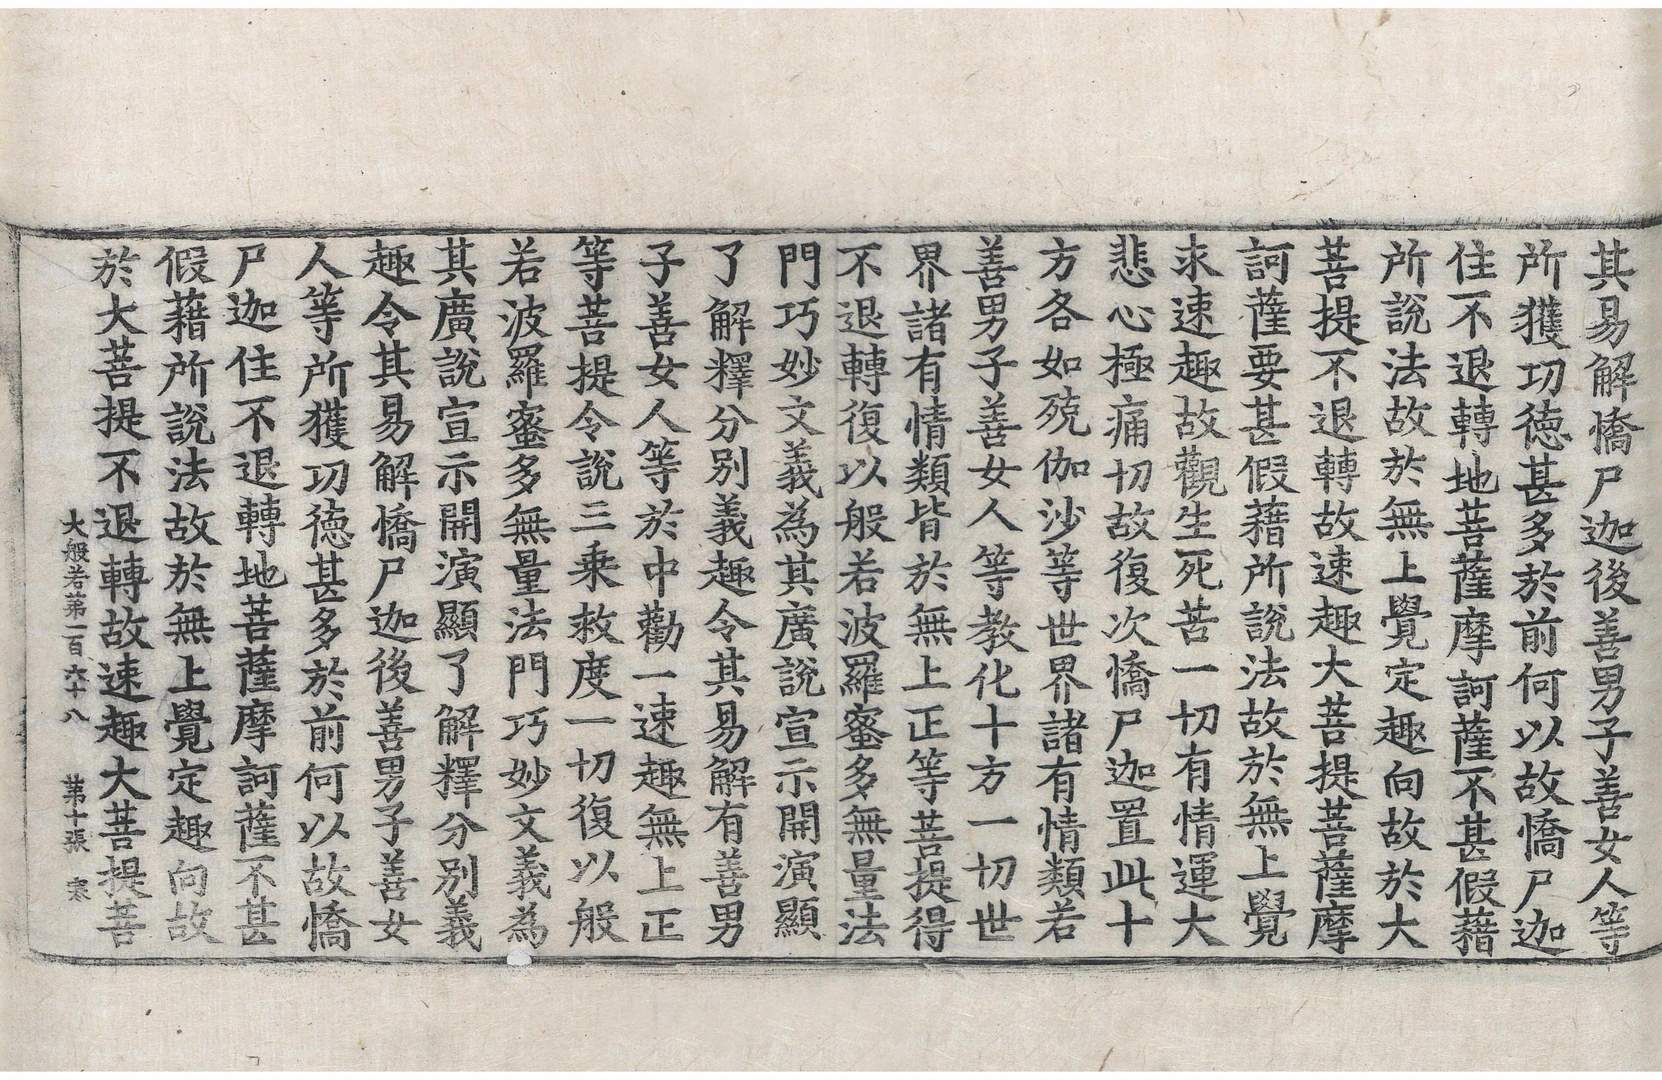 其易解憍尸迦後善男子善女人等
所獲功徳甚多於前何以故憍尸迦
住不退轉地菩薩摩訶薩不甚假藉
所說法故於無上覺定趣向故於大
菩提不退轉故速趣大菩提菩薩摩
訶薩要甚假藉所說法故於無上覺
求速趣故觀生死苦一切有情運大
悲心極痛切故復次憍尸迦置此十
方各如殑伽沙等世界諸有情類若
善男子善女人等教化十方一切世
界諸有情類皆於無上正等菩提得
不退轉復以般若波羅蜜多無量法
門巧妙文義為其廣說宣示開演顯
了解釋分別義趣令其易解有善男
子善女人等於中勸一速趣無上正
等菩提令說三乘救度一切復以般
若波羅蜜多無量法門巧妙文義為
其廣說宣示開演顯了解釋分別義
趣令其易解憍尸迦後善男子善女
人等所獲功徳甚多於前何以故憍
尸迦住不退轉地菩薩摩訶薩不甚
假藉所說法故於無上覺定趣向故
於大菩提不退轉故速趣大菩提菩
大般若第一百六十八 第十張 寒